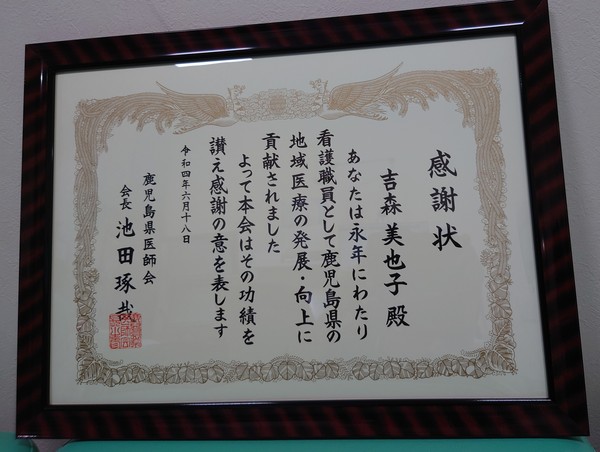 感謝状
吉森美也子殿
あなたは永年にわたり
看護職員として鹿児島県の
地域医療の発展・向上に
貢献されました
よって本会はその功績を
讃え感謝の意を表します
令和四年六月十八日
鹿児島県医師会
会長 池田琢哉